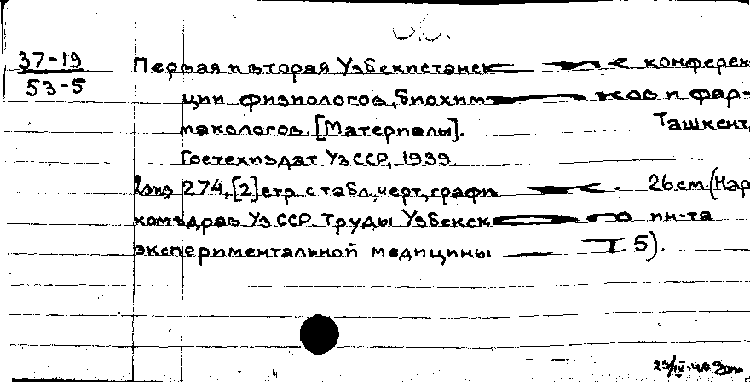 37-19
53-5
Первая и вторая Узбекистанск е конферен
ции физиологов, биохим ков и фар-
макологов. [Материалы]. Ташкент,
Гостехиздат УзССР, 1939
274, [2] стр. с табл., черт., графи 26 см (Нар
комздрав УзССР. Труды Узбекск го ин-та
экспериментальной медицины Т 5).